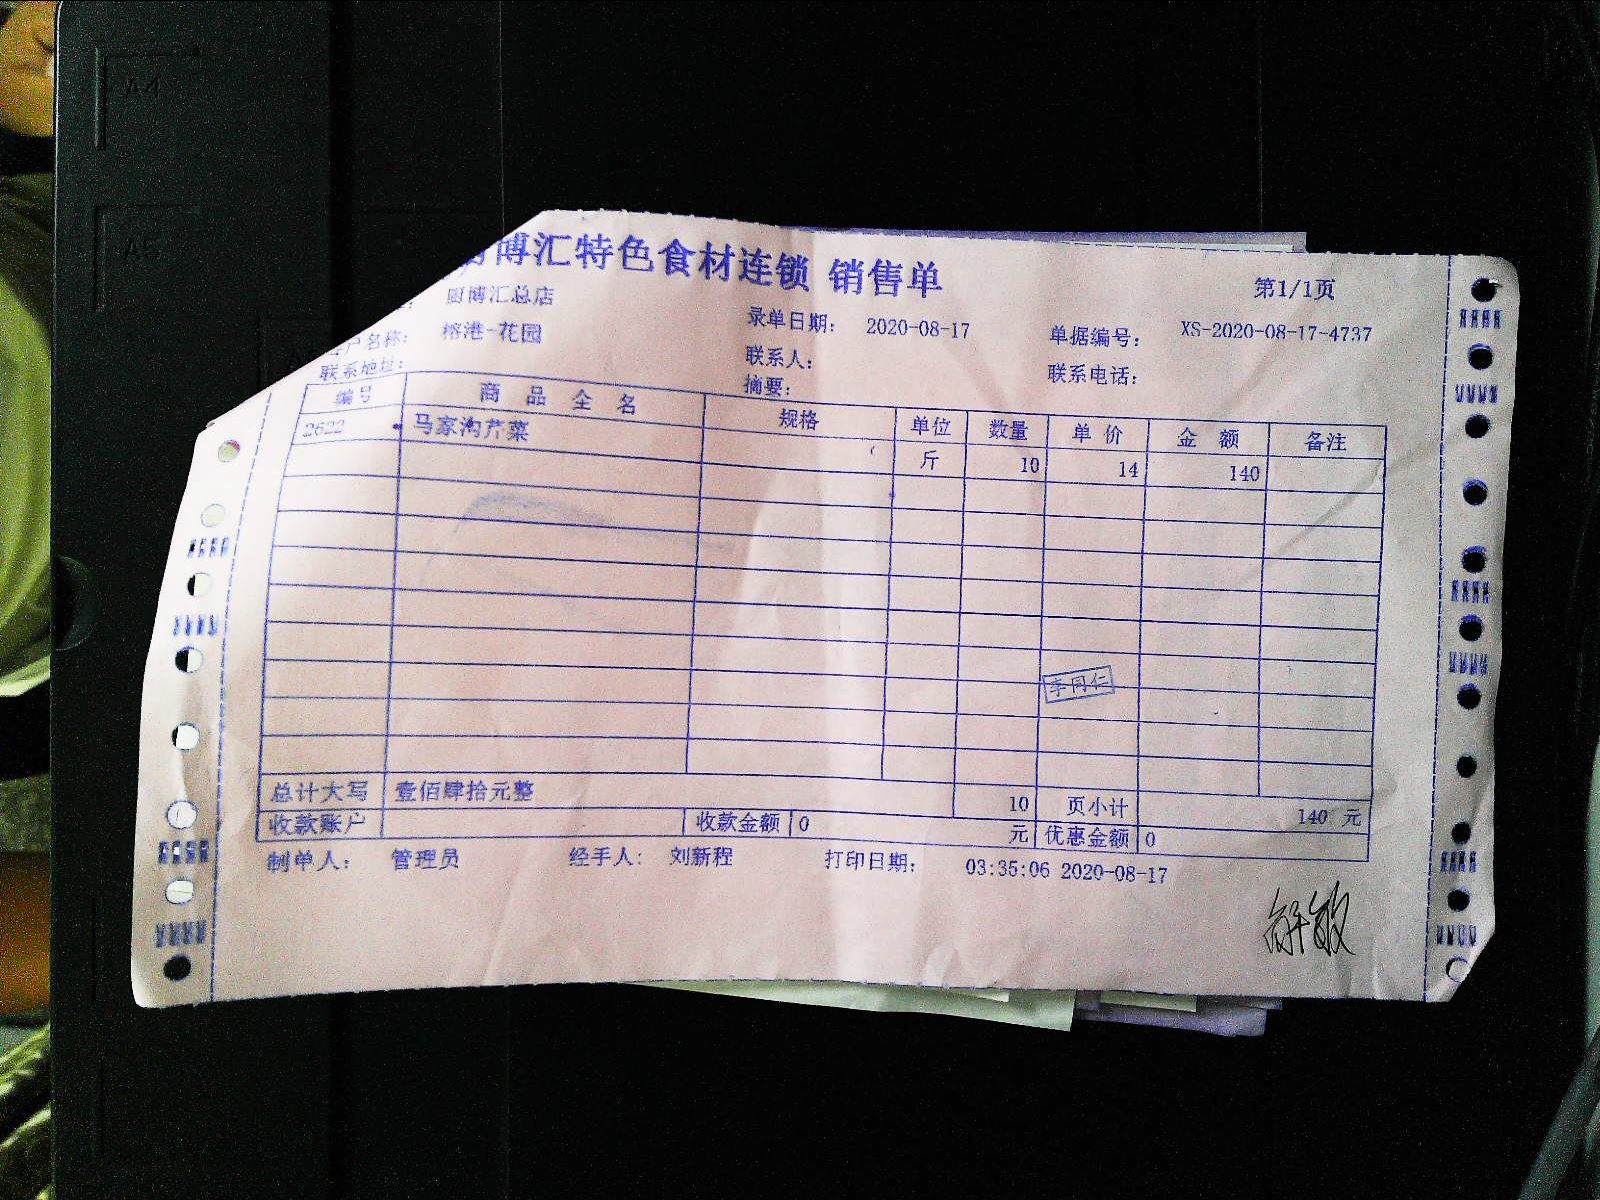 博汇特色食材连锁 销售单
第1/1页
圆博汇总店
客户名称： 榕港-花园 录单日期： 2020-08-17 单据编号： XS-2020-08-17-4737
联系地址： 联系人： 联系电话：
摘要：
编号 商品全名 规格 单位 数量 单价 金额 备注
2622 马家沟芹菜 斤 10 14 140
李同仁
总计大写 壹佰肆拾元整 10 页小计 140 元
收款账户 收款金额 0 元 优惠金额 0
制单人： 管理员 经手人： 刘新程 打印日期： 03:35:06 2020-08-17
解敏
A4
A5